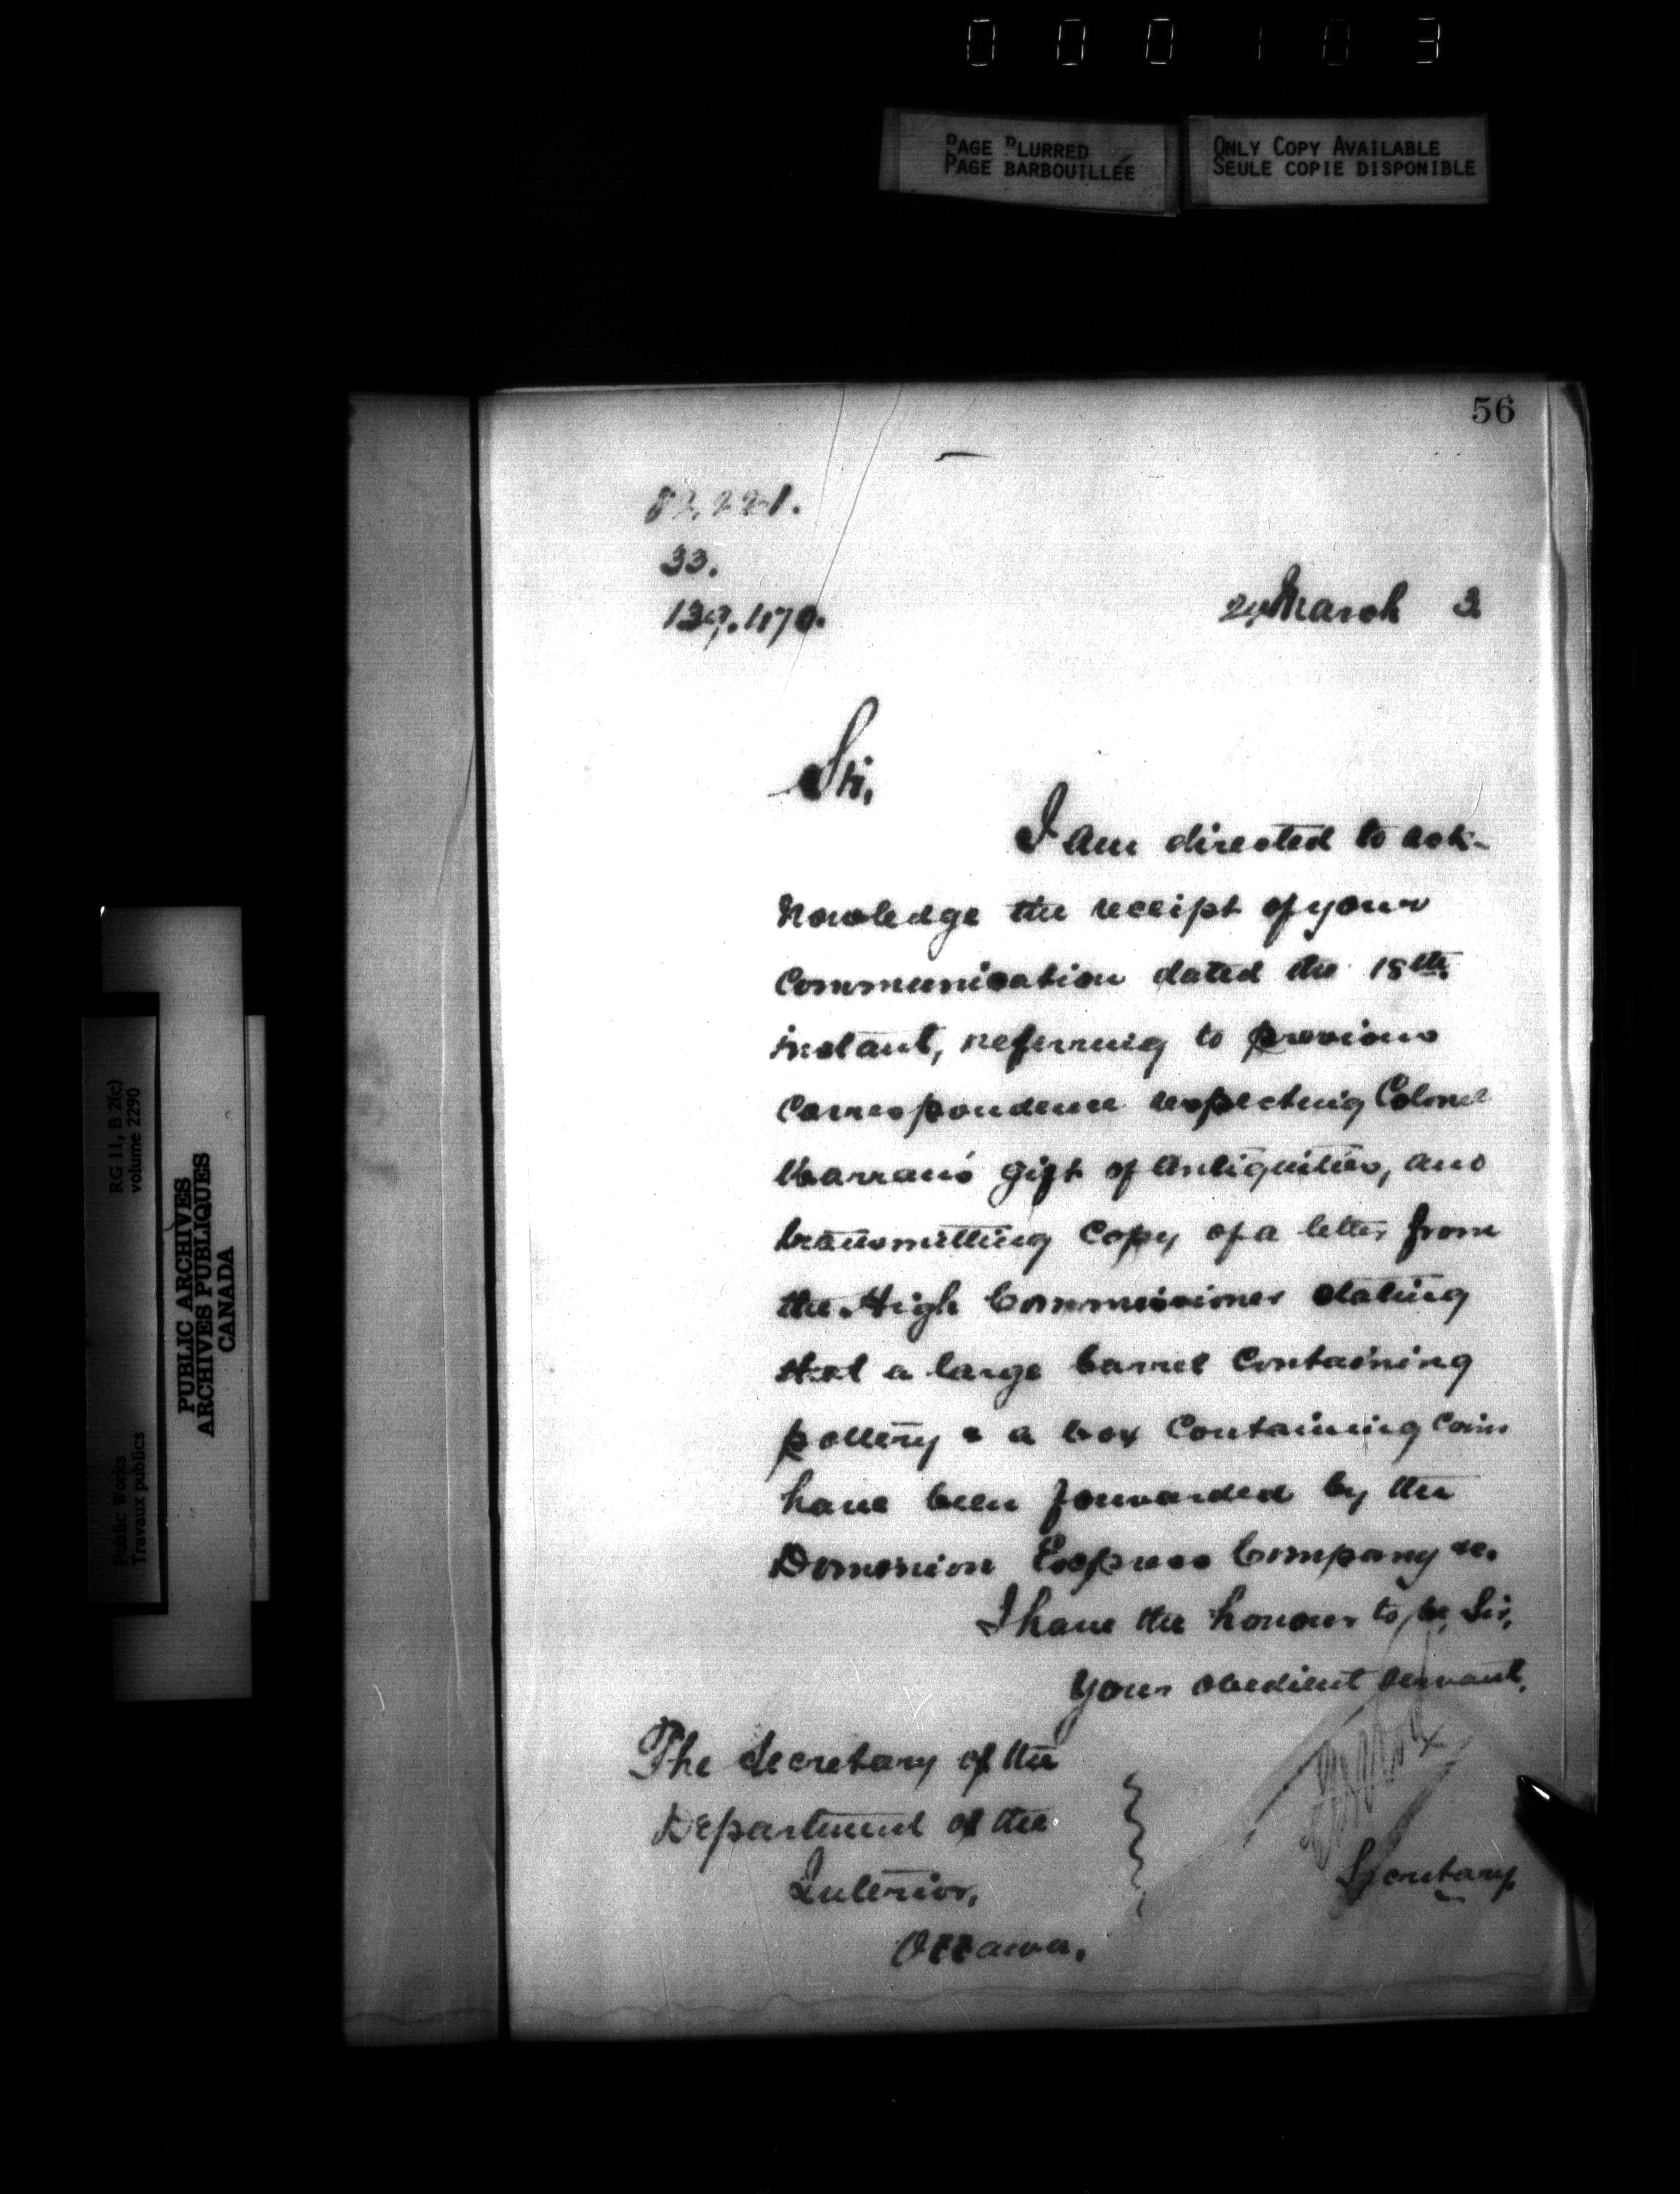 000103
PAGE BLURRED
PAGE BARBOUILLÉE
ONLY COPY AVAILABLE
SEULE COPIE DISPONIBLE
56
33.
March 3
Sir,
I am directed to ack-
nowledge the receipt of your
communication dated the 18th
instant, referring to previous
correspondence respecting Colonel
gift of Antiquities, and
transmitting copy of a letter from
the High Commissioner stating
that a large barrel containing
pottery & a box containing coins
have been forwarded by the
Dominion Express Company &c.
I have the honour to be, Sir,
Your obedient servant,
Secretary
The Secretary of the
Department of the
Interior,
Ottawa.
RG 11, B 2(c)
volume 2290
PUBLIC ARCHIVES
ARCHIVES PUBLIQUES
CANADA
Public Works
Travaux publics